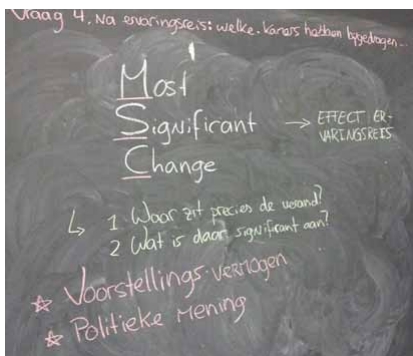 Vraag 4. Na ervaringsreis: welke kaners hebben bijgedragen...
Most
Significant → EFFECT ER-
VARINGSREIS
Change
↳ 1. Waar zit precies de verand?
2 Wat is daar significant aan?
☆ Voorstellings-vermogen
☆ Politieke mening